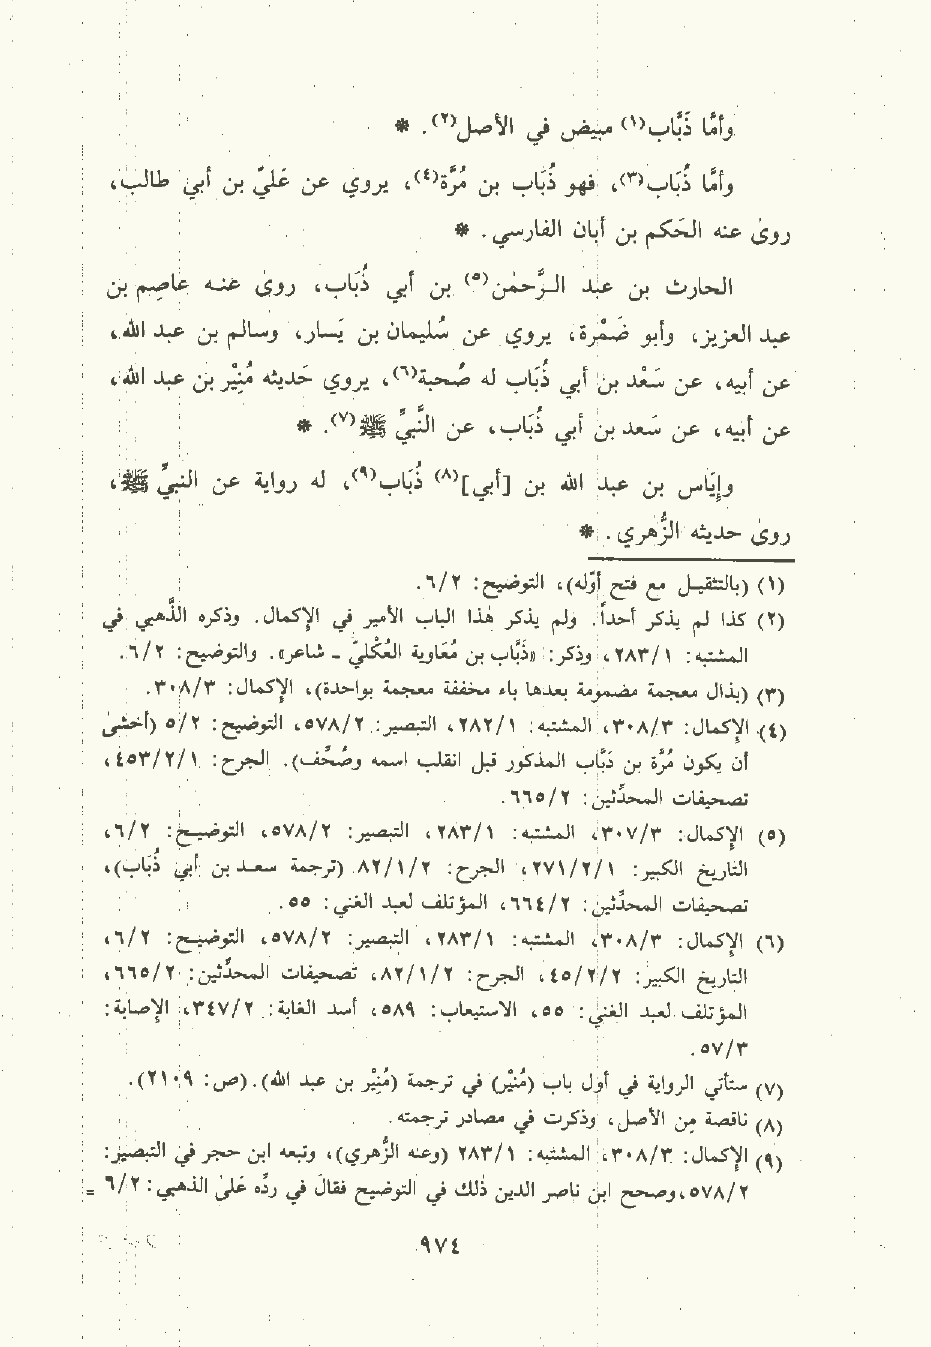 وأمَّا ذَبَّاب(١) مبيض في الأصل(٢). *
وأمَّا ذُبَاب(٣)، فهو ذُبَاب بن مُرَّة(٤)، يروي عن عَليّ بن أبي طالب،
روىٰ عنه الحَكم بن أبان الفارسي. *
الحارث بن عبد الرَّحمٰن(٥) بن أبي ذُبَاب، روىٰ عنه عاصِم بن
عبد العزيز، وأبو ضَمْرة، يروي عن سُليمان بن يَسار، وسالم بن عبد الله،
عن أبيه، عن سَعْد بن أبي ذُبَاب له صُحبة(٦)، يروي حَديثه مُنِيْر بن عبد الله،
عن أبيه، عن سَعد بن أبي ذُبَاب، عن النَّبيِّ ﷺ(٧). *
وإيَاس بن عبد الله بن [أبي](٨) ذُبَاب(٩)، له رواية عن النبيِّ ﷺ،
روىٰ حديثه الزُّهري. *
(١) (بالتثقيل مع فتح أوّله)، التوضيح: ٦/٢.
(٢) كذا لم يذكر أحداً. ولم يذكر هٰذا الباب الأمير في الإكمال. وذكره الذَّهبي في
المشتبه: ٢٨٣/١، وذكر: «ذَبَّاب بن مُعَاوية العُكْليّ ـ شاعر». والتوضيح: ٦/٢.
(٣) (بذال معجمة مضمومة بعدها باء مخففة معجمة بواحدة)، الإكمال: ٣٠٨/٣.
(٤) الإكمال: ٣٠٨/٣، المشتبه: ٢٨٢/١، التبصير: ٥٧٨/٢، التوضيح: ٥/٢ (أخشىٰ
أن يكون مُرَّة بن ذَبَّاب المذكور قبل انقلب اسمه وصُحِّف). الجرح: ٤٥٣/٢/١،
تصحيفات المحدِّثين: ٦٦٥/٢.
(٥) الإكمال: ٣٠٧/٣، المشتبه: ٢٨٣/١، التبصير: ٥٧٨/٢، التوضيح: ٦/٢،
التاريخ الكبير: ٢٧١/٢/١، الجرح: ٨٢/١/٢ (ترجمة سعد بن أبي ذُباب)،
تصحيفات المحدِّثين: ٦٦٤/٢، المؤتلف لعبد الغني: ٥٥.
(٦) الإكمال: ٣٠٨/٣، المشتبه: ٢٨٣/١، التبصير: ٥٧٨/٢، التوضيح: ٦/٢،
التاريخ الكبير: ٤٥/٢/٢، الجرح: ٨٢/١/٢، تصحيفات المحدِّثين: ٦٦٥/٢،
المؤتلف لعبد الغني: ٥٥، الاستيعاب: ٥٨٩، أسد الغابة: ٣٤٧/٢، الإصابة:
٥٧/٣.
(٧) ستأتي الرواية في أول باب (مُنِيْر) في ترجمة (مُنِيْر بن عبد الله). (ص: ٢١٠٩).
(٨) ناقصة مِن الأصل، وذكرت في مصادر ترجمته.
(٩) الإكمال: ٣٠٨/٣، المشتبه: ٢٨٣/١ (وعنه الزُّهري)، وتبعه ابن حجر في التبصير:
٥٧٨/٢، وصحح ابن ناصر الدين ذلك في التوضيح فقالَ في ردِّه عَلىٰ الذهبي: ٦/٢ =
٩٧٤